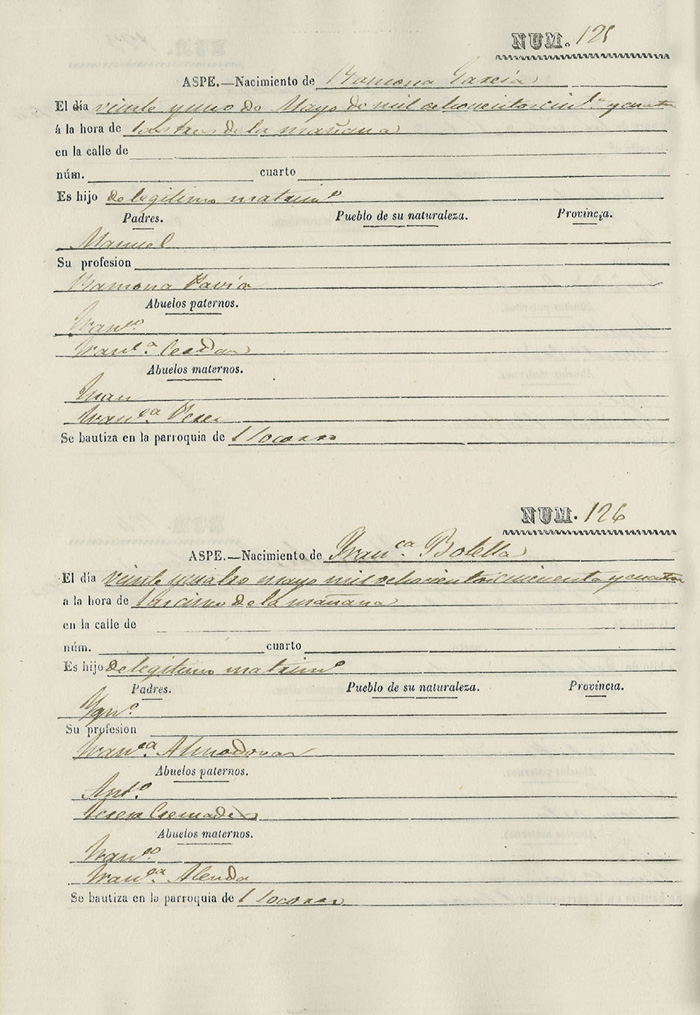 NUM. 125
ASPE.—Nacimiento de Ramona Garcia
El dia vinte y uno de Mayo de mil ochocientos cinc.ta y cuatro
á la hora de las tres de la mañana
en la calle de
núm. cuarto
Es hijo de legitimo matrim.o
Padres. Pueblo de su naturaleza. Provincia.
Manuel
Su profesion
Ramona Pavia
Abuelos paternos.
Fran.co
Fran.ca Cerdan
Abuelos maternos.
Fran
Fran.ca Perez
Se bautiza en la parroquia de l Socorro
NUM. 126
ASPE.—Nacimiento de Fran.ca Botella
El dia vinte y cuatro mayo mil ochocientos cincuenta y cuatro
a la hora de las cinco de la mañana
en la calle de
núm. cuarto
Es hijo de legitimo matrim.o
Padres. Pueblo de su naturaleza. Provincia.
Ygn.o
Su profesion
Fran.ca Almodovar
Abuelos paternos.
Ant.o
Teresa Cremades
Abuelos maternos.
Fran.co
Fran.ca Alenda
Se bautiza en la parroquia de l Socorro